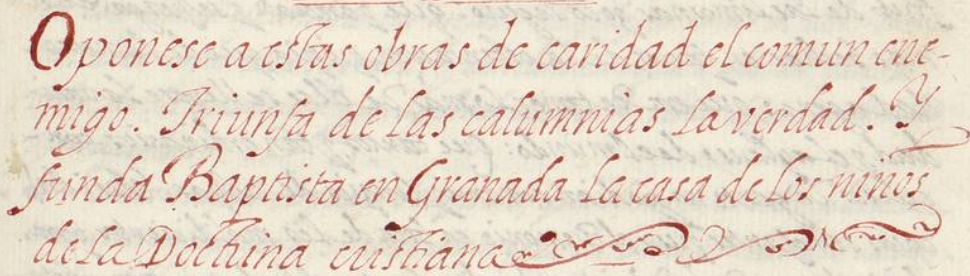 Oponese a estas obras de caridad el comun ene-
migo. Triunfa de las calumnias la verdad. Y
funda Baptista en Granada la casa de los niños
de la Doctrina cristiana